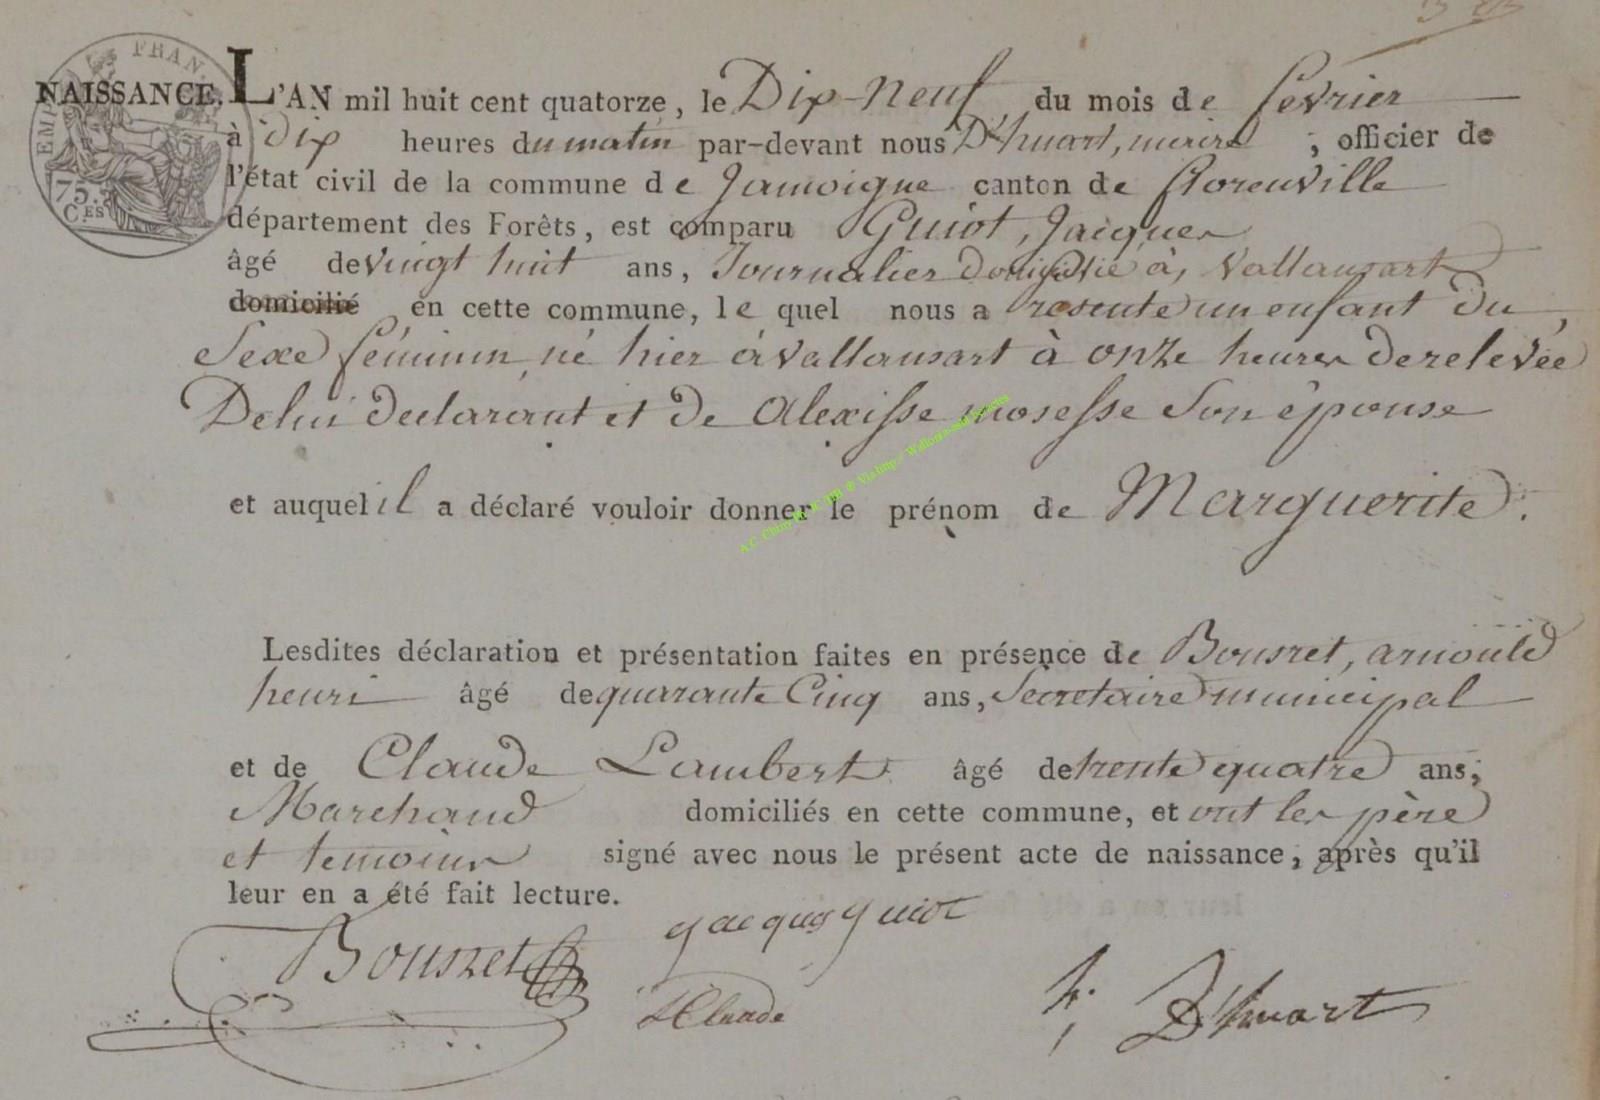 EMPIRE FRAN.
75. CES
NAISSANCE. L'AN mil huit cent quatorze, le Dix-neuf du mois de fevrier
à dix heures du matin par-devant nous D'huart, maire ; officier de
l'état civil de la commune de Jamoigne canton de florenville
département des Forêts, est comparu Guiot, Jacques
âgé de vingt huit ans, Journalier domicilié à, Vallansart
domicilié en cette commune, le quel nous a presenté un enfant du
Sexe féminin, né hier à Vallansart à onze heures de relevée
De lui declarant et de Alexisse mosesse Son épouse
et auquel il a déclaré vouloir donner le prénom de Marguerite.
Lesdites déclaration et présentation faites en présence de Bousret, arnould
henri âgé de quarante Cinq ans, Secretaire municipal
et de Claude Lambert âgé de trente quatre ans,
Marchand domiciliés en cette commune, et ont les père
et temoins signé avec nous le présent acte de naissance, après qu'il
leur en a été fait lecture.
Bousret jacques guiot
LClaude D'huart